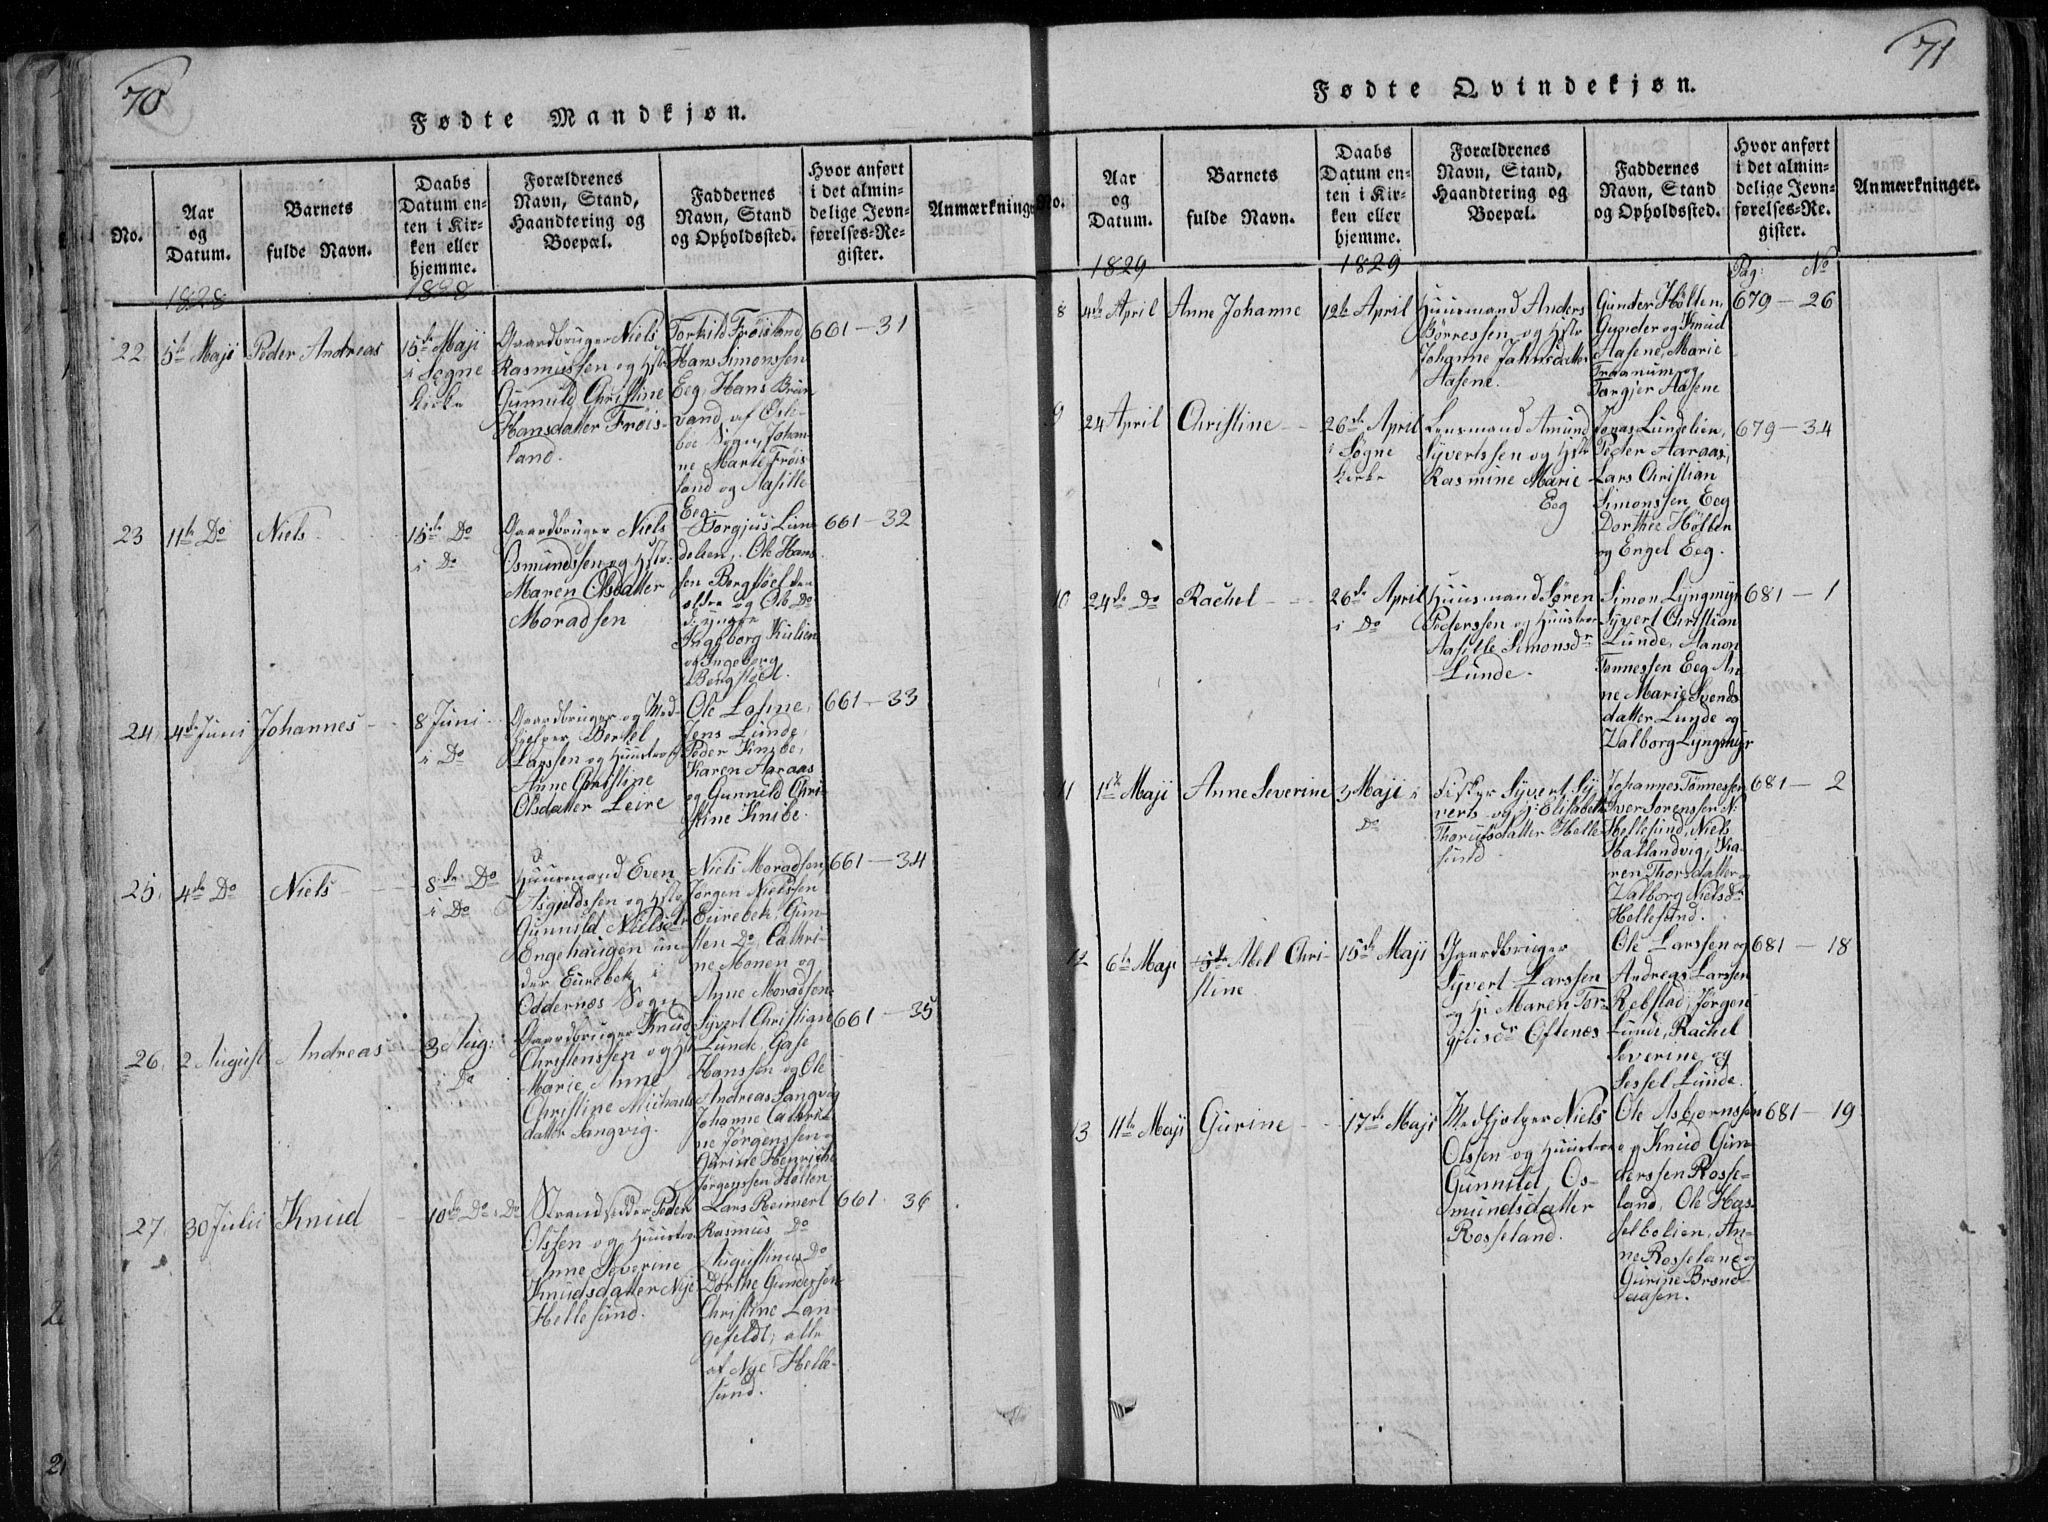 70
Fødte Mandkjøn.
No.
Aar
og
Datum.
Barnets
fulde Navn.
Daabs
Datum en-
ten i Kir-
ken eller
hjemme.
Forældrenes
Navn, Stand,
Haandtering og
Boepæl.
Faddernes
Navn, Stand
og Opholdssted.
Hvor anført
i det almin-
delige Jevn-
førelses-Re-
gister.
Anmærkninger
1828
1828
22
5te Maji
Peder Andreas
15de Maji
i Sogne
Kirke
Gaardbruger Niels
Rasmussen og Hstr
Gunnild Christine
Hansdatter Frøis-
land.
Torkild Frøisland,
Hans Simonssen
Eeg, Hans Bruu
vand af Øsle-
boe Sogn, Johan-
ne Marie Frøis-
land og Aasille
Eeg.
661 — 31
23
11te Do
Niels
15de Do
i Do
Gaardbruger Niels
Osmundssen og Hstr:
Maren Olsdatter
Moradsen
Torgjus Lun-
delien, Ole Hans-
sen Bergstøel den
ældre og Ole Do
d. yngre
Ingeborg Kulien
og Ingeborg
Bergstøel.
661 — 32
24.
4de Juni
Johannes
8 Juni
i Do
Gaardbruger og Med-
hjelper Bertel
Larssen og Huustroe
Anne Christine
Olsdatter Leire
Ole Lohne,
Jens Lunde,
Peder Knibe,
Karen Aaraas
og Gunnild Chri-
stine Knibe.
661 — 33
25.
4de Do
Niels
8de Do
i Do
Huusmand Even
Asgjeldssen og Hstr
Gunnild Nielsdtr
Engehaugen un-
der Eurebek i
Oddernæs Sogn
Niels Moradsen,
Jørgen Nielssen
Eurebek, Gun-
sten Do, Cathri-
ne Monen og
Anne Moradsen
661 — 34
26.
2 August
Andreas
3 Aug:
i Do
Gaardbruger Knud
Christenssen og Hstr
Marie Anne
Christine Michaels-
datter Langvig.
Syvert Christian
Lunde, Gase
Hanssen og Ole
Andreas Langvig
Johanne Cathri-
ne Jørgenssen og
Gurine Henriche
Jørgenssen Høllen
661 — 35
27.
30 Julii
Knud
10de Do i Do
Strandsidder Peder
Olssen og Huustroe
Anne Severine
Knudsdatter Nye
Hellesund.
Lars Reimert
Rasmus Do
Augustinus Do
Dorthe Gunderssen
Christine Lan
gefeldt, alle
af Nye Helle-
sund.
661 . 36
71
Fødte Qvindekjøn.
No.
Aar
og
Datum.
Barnets
fulde Navn.
Daabs
Datum en-
ten i Kir-
ken eller
hjemme.
Forældrenes
Navn, Stand,
Haandtering og
Boepæl.
Faddernes
Navn, Stand
og Opholdssted.
Hvor anført
i det almin-
delige Jevn-
førelses-Re-
gister.
Anmærkninger.
1829
1829
Pag: No
8
4de April
Anne Johanne
12te April
Huusmand Anders
Børressen og Hstr
Johanne Jahnsdatter
Aasene.
Gunder Høllen,
Gunder og Knud
Aasene, Marie
Traanum og
Torgjer Aasene
679 — 26
9
24 April
Christine
26de April
i Sogne
Kirke
Lensmand Amund
Syvertssen og Hstr
Rasmine Marie
Eeg
Jonas Lundelien,
Peder Aaraas,
Lars Christian
Simonssen Eeg
Dorthee Høllen
og Engel Eeg.
679 — 34
10
24de Do
Rachel
26de April
i Do
Huusmand Søren
Pederssen og Huustroe
Aasille Simonsdr
Lunde.
Simon Lyngmyr
Syvert Christian
Lunde, Aanon
Tønnessen Eeg An-
ne Marie Svends
datter Lunde og
Valborg Lyngmyr
681 — 1
11
1ste Maji
Anne Severine
3 Maji i
Do
Fisker Syvert Sy-
verts og H: Elisabeth
Thorusdatter Helle-
sund.
Johannes Tønnessen
Iver Sørenssen N.
Hellesund, Niels
Hallandvig, Ka-
ren Thorsdatter og
Valborg Nielsdr
Hellesund.
681 — 2
12
6te Maji
Abel Chri-
stine
15de Maji
Gaardbruger
Syvert Larssen
og H: Maren Tor-
gjusdr Oftenes
Ole Larssen og
Andreas Larssen
Rebstad, Jørgen
Lunde, Rachel
Severine og
Sessel Lunde.
681 — 18
13
11te Maji
Gurine
17de Maji
Medhjelper Niels
Olssen og Huustroe
Gunnild Os-
mundsdatter
Rosseland.
Ole Asbjørnssen
og Knud Gun-
derssen Rosse-
land, Ole Has-
selbolien, An-
ne Rosseland og
Gurine Brand-
aasen.
681 — 19